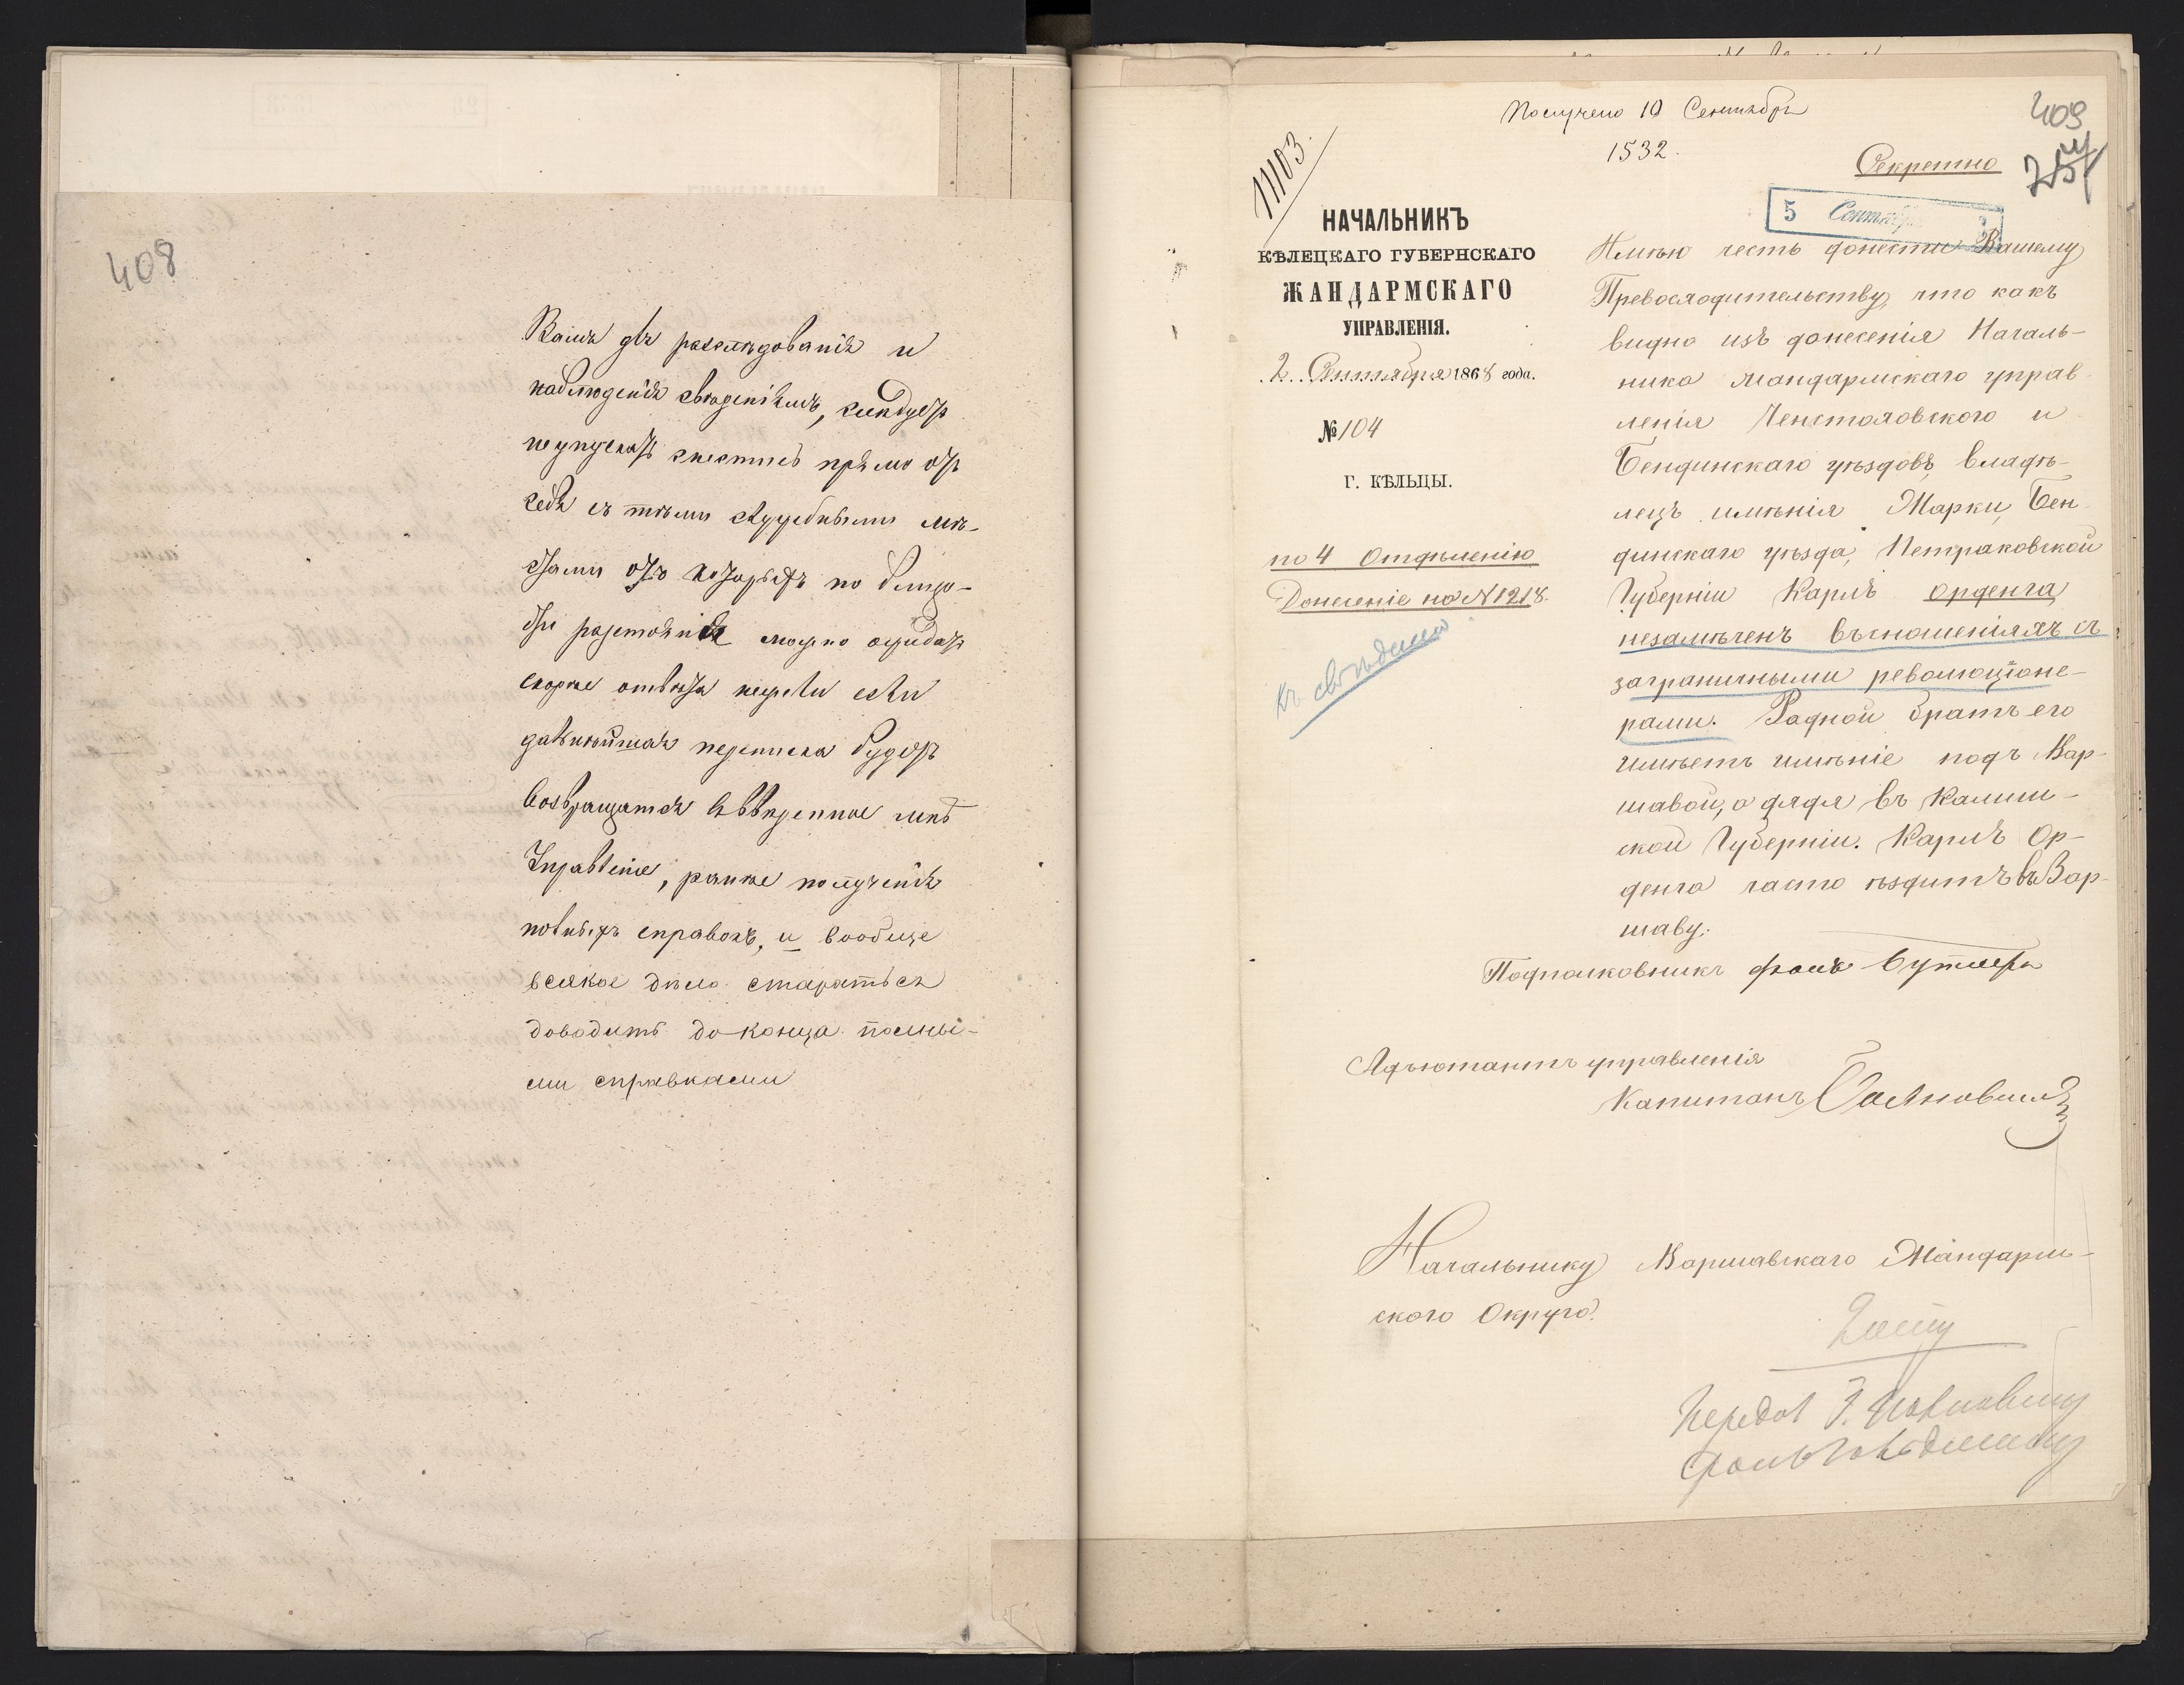 408
Вамъ для разслѣдованія и
наблюденія свѣденіямъ, слѣдуетъ
неупускать снестись прямо отъ
себя съ тѣми служебными мѣ-
стами отъ которыхъ по близо-
сти разстоянія можно ожидать
скорѣе отвѣта нежели если
дальнѣйшая переписка будетъ
возвращатся въ ввѣренное мнѣ
Управленіе, ранѣе полученія
полныхъ справокъ, и вообще
всякое дѣло стараться
доводить до конца полны-
ми справками
Получено 10 Сентября
1532.
409
11103.
Секретно
5 Сентября
НАЧАЛЬНИКЪ
КѢЛЕЦКАГО ГУБЕРНСКАГО
ЖАНДАРМСКАГО
УПРАВЛЕНІЯ.
2 Сентября 1868 года.
№ 104
Г. КѢЛЬЦЫ.
по 4 Отдѣленію
Донесеніе на № 1218.
къ свѣденію
Имѣю честь донести Вашему
Превосходительству, что какъ
видно изъ донесенія Началь-
ника Жандармскаго управ-
ленія Ченстоховского и
Бендинскаго уѣздовъ, владѣ-
лецъ имѣнія Жарки, Бен-
динскаго уѣзда, Петраковской
Губерніи Карлъ Орденга,
незамѣченъ въ сношеніяхъ съ
заграничными революціоне-
рами. Радной братъ его
имѣетъ имѣніе подъ Вар-
шавой, а дядя въ Калиш-
ской Губерніи. Карлъ Ор-
денга часто ѣздитъ въ Вар-
шаву.
Подполковникъ фонъ Бутлеръ
Адъютантъ управленія
Капитанъ
Начальнику Варшавскаго Жандарм-
ского Округа.